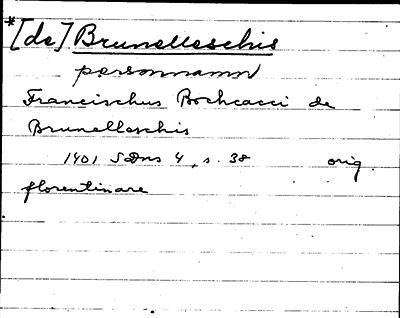 *[de] Brunelleschis
personnamn
Francischus Bochcacci de
Brunelleschis
1401 SDns 4, s. 38 orig.
florentinare